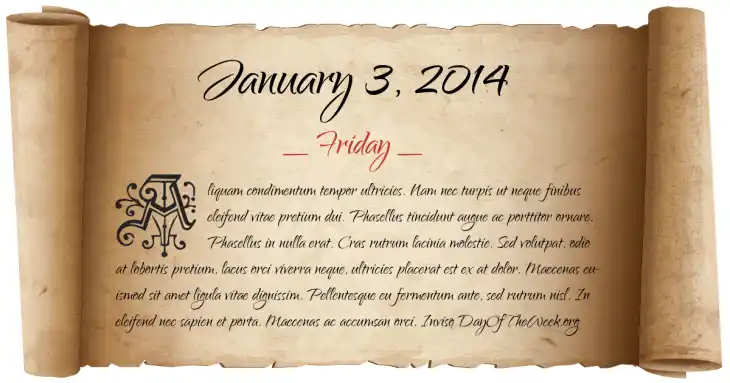 January 3, 2014
_ Friday _
Aliquam condimentum tempor ultricies. Nam nec turpis ut neque finibus
eleifend vitae pretium dui. Phasellus tincidunt augue ac porttitor ornare.
Phasellus in nulla erat. Cras rutrum lacinia molestie. Sed volutpat, odio
at lobortis pretium, lacus orci viverra neque, ultricies placerat est ex at dolor. Maecenas eu-
ismod sit amet ligula vitae dignissim. Pellentesque eu fermentum ante, sed rutrum nisl. In
eleifend nec sapien et porta. Maecenas ac accumsan orci. Invisq DayOfTheWeek.org